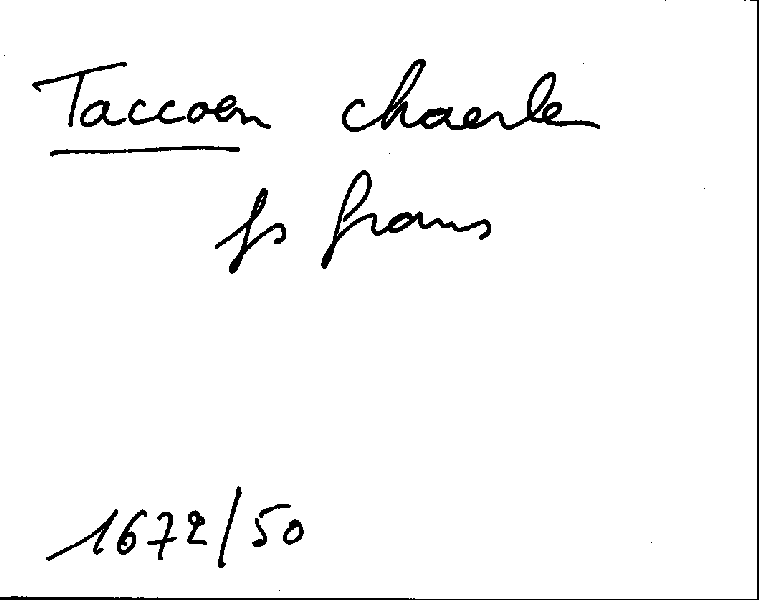 Taccoen chaerle
fs frans
1672/50